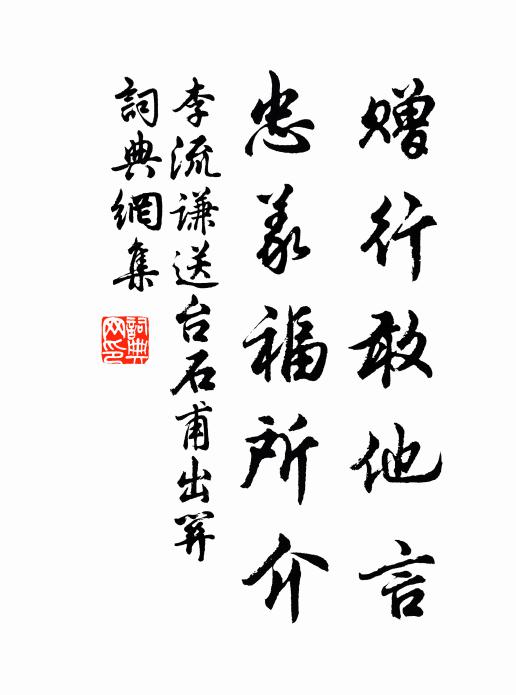 赠行敢他言
忠义福所介
李流谦送台石甫出關
詞典網集
詞典网印